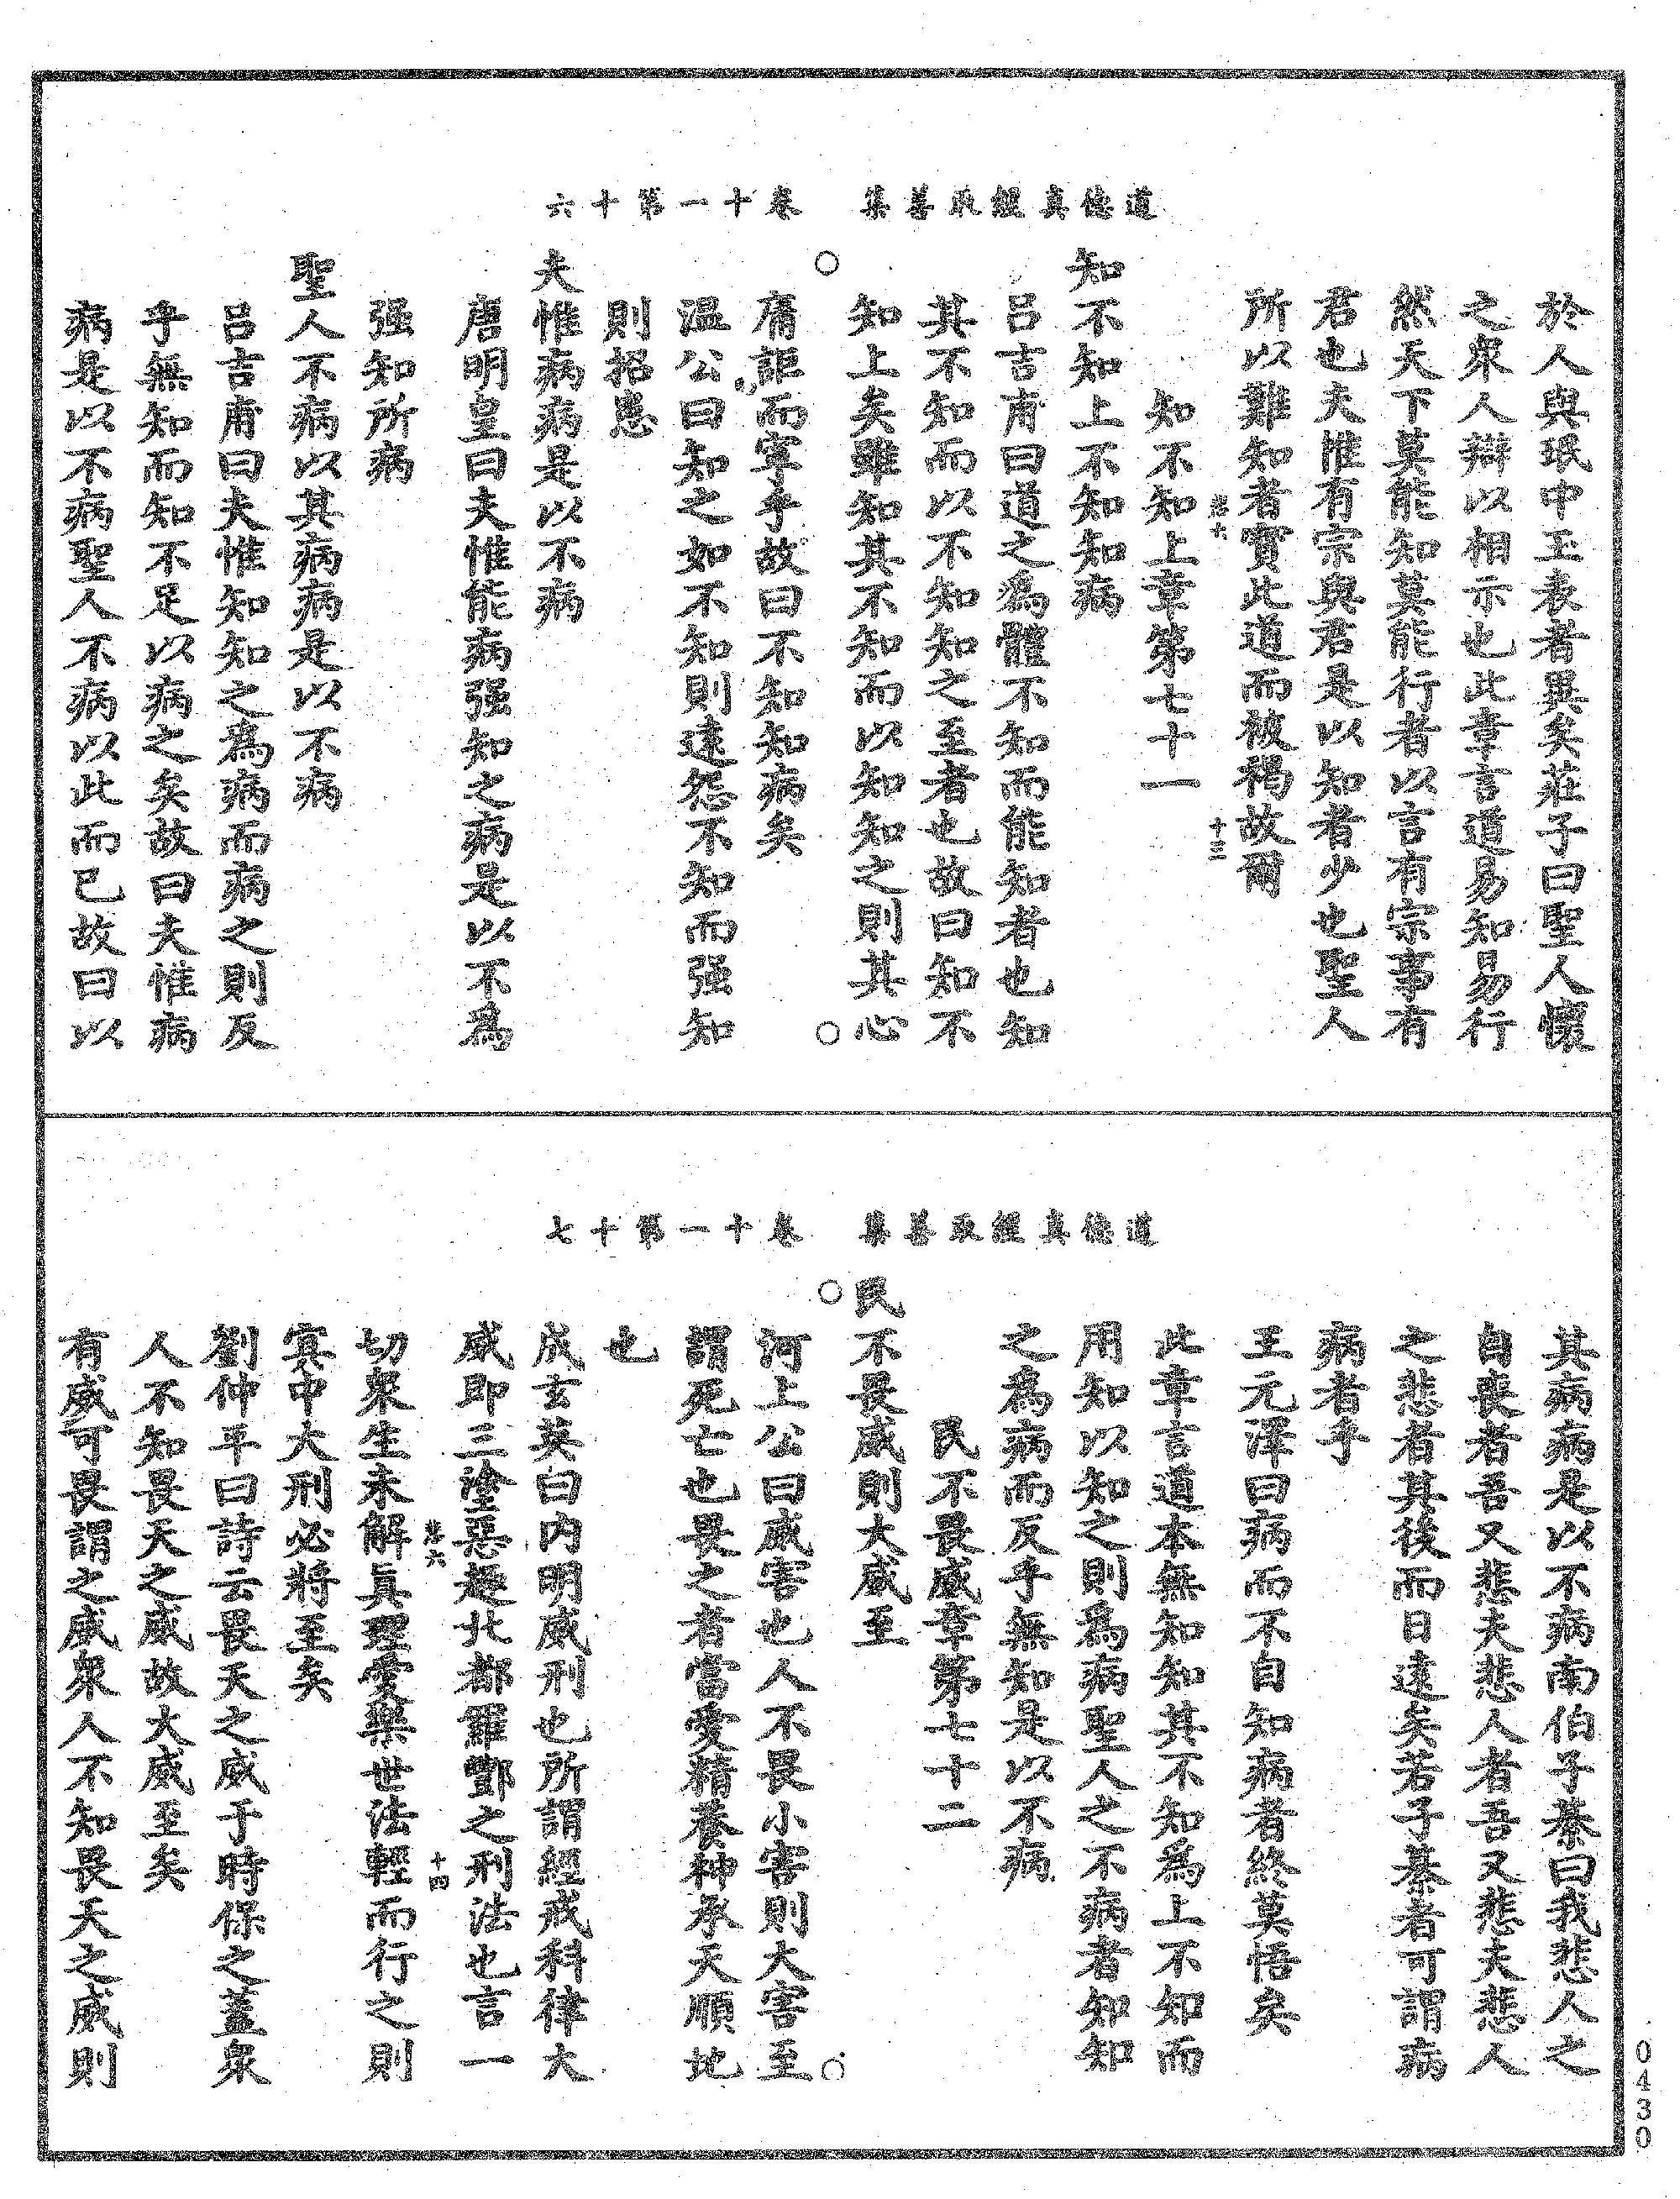 道德真經取善集　卷十一第十六
於人與珉中玉表者異矣莊子曰聖人懷
之衆人辯以相示也此章言道易知易行
然天下莫能知莫能行者以言有宗事有
君也夫惟有宗與君是以知者少也聖人
所以難知者實此道而被褐故爾
十三
知不知上章第七十一
知不知上不知知病
吕吉甫曰道之爲體不知而能知者也知
其不知而以不知知之至者也故曰知不
知上矣雖知其不知而以知知之則其心
庸詎而寧乎故曰不知知病矣
溫公曰知之如不知則遠怨不知而强知
則招患
夫惟病病是以不病
唐明皇曰夫惟能病强知之病是以不爲
强知所病
聖人不病以其病病是以不病
吕吉甫曰夫惟知知之爲病而病之則反
乎無知而知不足以病之矣故曰夫惟病
病是以不病聖人不病以此而已故曰以
道德真經取善集　卷十一第十七
其病病是以不病南伯子綦曰我悲人之
自喪者吾又悲夫悲人者吾又悲夫悲人
之悲者其後而日遠矣若子綦者可謂病
病者乎
王元澤曰病而不自知病者終莫悟矣
此章言道本無知知其不知爲上不知而
用知以知之則爲病聖人之不病者知知
之爲病而反乎無知是以不病
民不畏威章第七十二
民不畏威則大威至
河上公曰威害也人不畏小害則大害至
謂死亡也畏之者當愛精養神承天順地
也
成玄英曰内明威刑也所謂經戒科律大
威即三塗惡趣北都羅酆之刑法也言一
十四
切衆生未解眞理愛樂世法輕而行之則
冥中大刑必將至矣
劉仲平曰詩云畏天之威于時保之蓋衆
人不知畏天之威故大威至矣
有威可畏謂之威衆人不知畏天之威則
0430